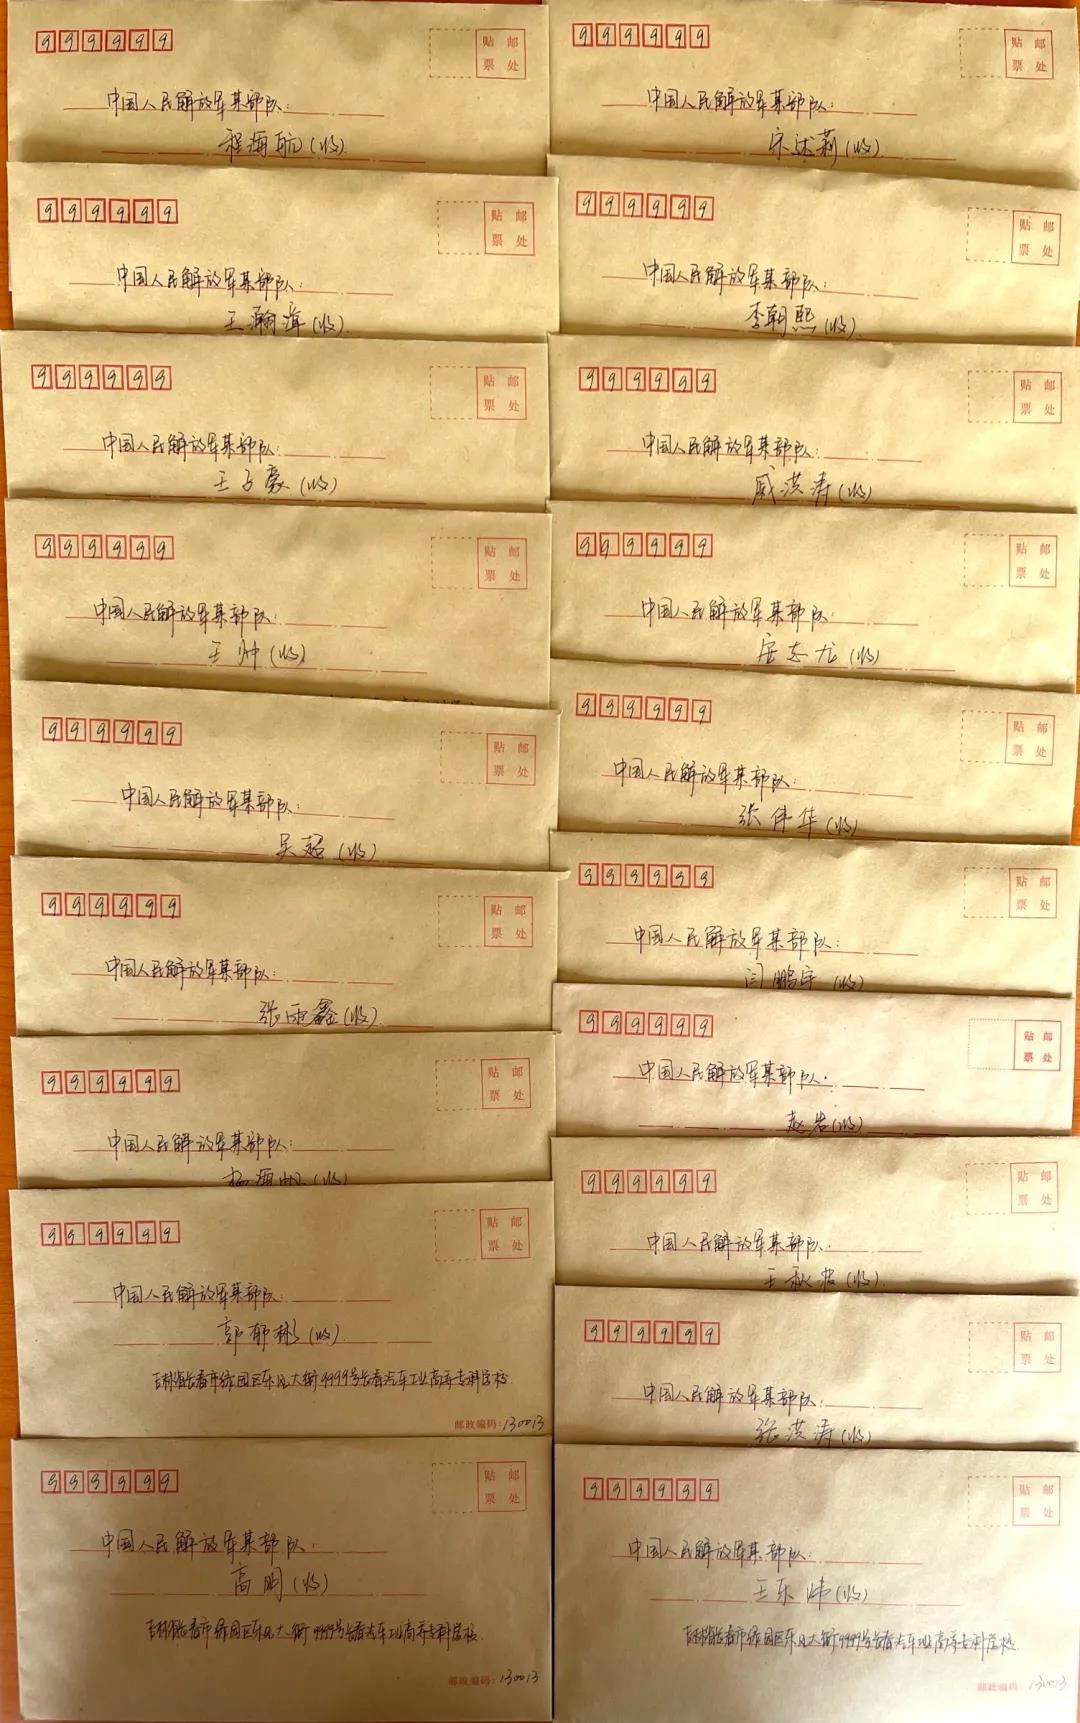 999999
贴 邮
票 处
中国人民解放军某部队:
程海航(收)
999999
贴 邮
票 处
中国人民解放军某部队:
王瀚漳(收)
999999
贴 邮
票 处
中国人民解放军某部队:
王子豪(收)
999999
贴 邮
票 处
中国人民解放军某部队:
王帅(收)
999999
贴 邮
票 处
中国人民解放军某部队:
吴超(收)
999999
贴 邮
票 处
中国人民解放军某部队:
张雨鑫(收)
999999
贴 邮
票 处
中国人民解放军某部队:
杨海帆(收)
999999
贴 邮
票 处
中国人民解放军某部队:
郭郁彬(收)
吉林省长春市绿园区东风大街9999号长春汽车工业高等专科学校
邮政编码:130013
999999
贴 邮
票 处
中国人民解放军某部队.
高明(收)
吉林省长春市绿园区东风大街9999号长春汽车工业高等专科学校.
邮政编码:130013
999999
贴 邮
票 处
中国人民解放军某部队:
宋述莉(收)
999999
贴 邮
票 处
中国人民解放军某部队:
李朝熙(收)
999999
贴 邮
票 处
中国人民解放军某部队:
戚洪涛(收)
999999
贴 邮
票 处
中国人民解放军某部队:
志龙(收)
999999
贴 邮
票 处
中国人民解放军某部队:
张伟华(收)
999999
贴 邮
票 处
中国人民解放军某部队:
闫鹏宇(收)
999999
贴 邮
票 处
中国人民解放军某部队.
赵岩(收)
999999
贴 邮
票 处
中国人民解放军某部队.
王秋波(收)
999999
贴 邮
票 处
中国人民解放军某部队.
张洪涛(收)
999999
贴 邮
票 处
中国人民解放军某部队:
王东炜(收)
吉林省长春市绿园区东风大街9999号长春汽车工业高等专科学校
邮政编码:130013